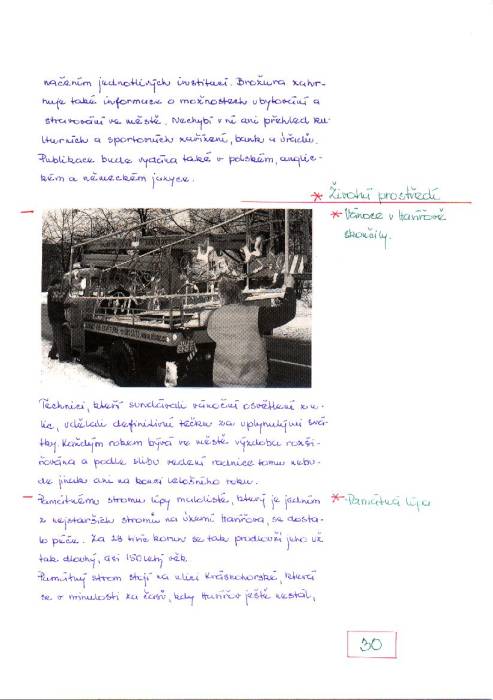 načením jednotlivých institucí. Brožura zahr-
nuje také informace o možnostech ubytování a
stravování ve městě. Nechybí v ní ani přehled ku-
lturních a sportovních zařízení, bank a úřadů.
Publikace bude vydána také v polském, anglic-
kém a německém jazyce.
* Životní prostředí
* Vánoce v Havířově
skončily.
Technici, kteří sundávali vánoční osvětlení z u-
lic, udělali definitivní tečku za uplynulými svá-
tky. Každým rokem bývá ve městě výzdoba rozši-
řována a podle slibu vedení radnice tomu nebu-
de jinak ani na konci letošního roku.
Památnému stromu lípy malolisté, který je jedním
* Památná lípa
z nejstarších stromů na území Havířova, se dosta-
lo péče. Za 28 tisíc korun se tak prodlouží jeho už
tak dlouhý, asi 150letý věk.
Památný strom stojí na ulici Krásnohorské, která
se v minulosti za časů, kdy Havířov ještě nestál,
30